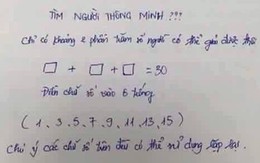 TÌM NGƯỜI THÔNG MINH ???
Chỉ có khoảng 2 phần trăm số người có thể giải được thôi
□ + □ + □ = 30
Điền chữ số vào ô trống.
( 1, 3, 5, 7, 9, 11, 13, 15 )
Chú ý các chữ số trên đầu có thể sử dụng lặp lại.